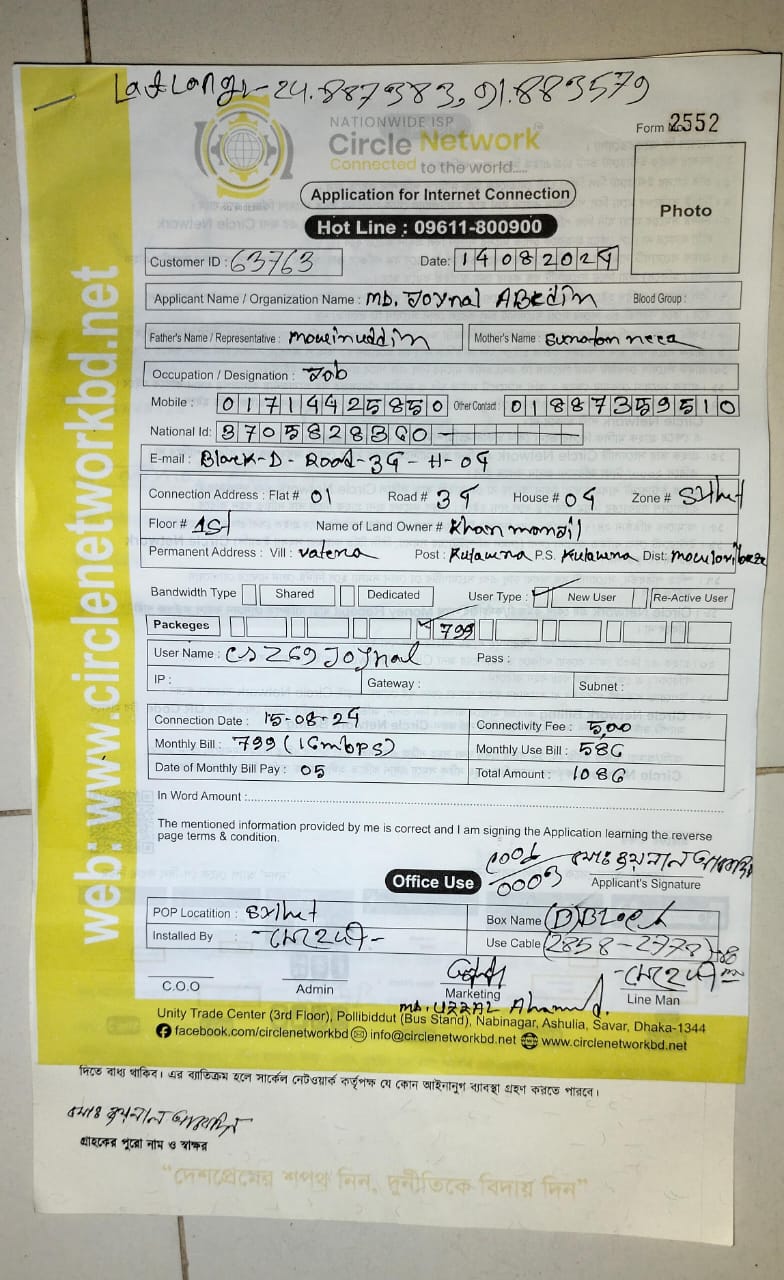 Lat Long:- 24.887383, 91.883579
NATIONWIDE ISP
Circle Network
Connected to the world.....
Form No. 2552
Application for Internet Connection
Photo
Hot Line : 09611-800900
Customer ID : 63763 Date: 14082024
Applicant Name / Organization Name : MD. Joynal ABedin Blood Group :
Father's Name / Representative : Moueinuddin Mother's Name :
Occupation / Designation : Job
Mobile : 01714425850 Other Contact : 01887359510
National Id: 3705828360
E-mail : Block-D- Road-34-H-04
Connection Address : Flat # 01 Road # 34 House # 04 Zone # Sylhet
Floor # 1st Name of Land Owner # Khan monjil
Permanent Address : Vill : vatera Post : Kulaura P.S. Kulaura Dist: moulovibazar
Bandwidth Type Shared Dedicated User Type : New User Re-Active User
Packeges 799
User Name : CSZ69Joynal Pass :
IP : Gateway : Subnet :
Connection Date : 15-08-24 Connectivity Fee : 500
Monthly Bill : 799 (16mbps) Monthly Use Bill : 586
Date of Monthly Bill Pay : 05 Total Amount : 1086
In Word Amount :
The mentioned information provided by me is correct and I am signing the Application learning the reverse
page terms & condition.
মোঃ জয়নাল আবেদীন
Office Use
0003
Applicant's Signature
POP Locatition : Sylhet Box Name (D) Block
Installed By : -মেহেদী- Use Cable (2858-2773)
-মেহেদী
C.O.O Admin Marketing Line Man
MD. UZZAL Ahamed.
Unity Trade Center (3rd Floor), Pollibiddut (Bus Stand), Nabinagar, Ashulia, Savar, Dhaka-1344
facebook.com/circlenetworkbd info@circlenetworkbd.net www.circlenetworkbd.net
web: www.circlenetworkbd.net
দিতে বাধ্য থাকিব। এর ব্যতিক্রম হলে সার্কেল নেটওয়ার্ক কর্তৃপক্ষ যে কোন আইনানুগ ব্যবস্থা গ্রহণ করতে পারবে।
মোঃ জয়নাল আবেদীন
গ্রাহকের পুরো নাম ও স্বাক্ষর
“দেশপ্রেমের শপথ নিন, দুর্নীতিকে বিদায় দিন”